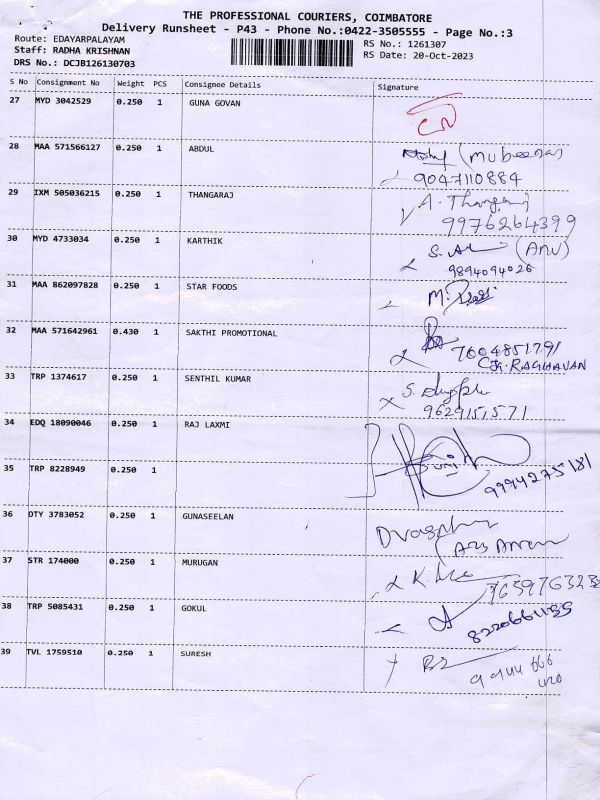 THE PROFESSIONAL COURIERS, COIMBATORE
Delivery Runsheet - P43 - Phone No.:0422-3505555 - Page No.:3
Route: EDAYARPALAYAM
RS No.: 1261307
Staff: RADHA KRISHNAN
RS Date: 20-Oct-2023
DRS No.: DCJB126130703
S No Consignment No Weight PCS Consignee Details Signature
27 MYD 3042529 0.250 1 GUNA GOVAN
28 MAA 571566127 0.250 1 ABDUL (Mubeena)
9047110884
29 IXM 505036215 0.250 1 THANGARAJ A. Thangaraj
9976264399
30 MYD 4733034 0.250 1 KARTHIK (ANU)
9894094026
31 MAA 862097828 0.250 1 STAR FOODS
32 MAA 571642961 0.430 1 SAKTHI PROMOTIONAL 7604851791
RAGHAVAN
33 TRP 1374617 0.250 1 SENTHIL KUMAR
9629151571
34 EDQ 18090046 0.250 1 RAJ LAXMI
35 TRP 8228949 0.250 1 9994275181
36 OTY 3783052 0.250 1 GUNASEELAN
37 STR 174000 0.250 1 MURUGAN
38 TRP 5085431 0.250 1 GOKUL
39 TVL 1759510 0.250 1 SURESH